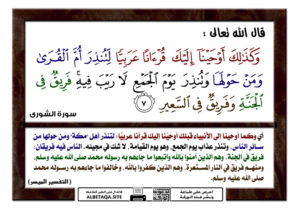 قال الله تعالى :
وَكَذَٰلِكَ أَوْحَيْنَا إِلَيْكَ قُرْءَانًا عَرَبِيًّا لِّتُنذِرَ أُمَّ ٱلْقُرَىٰ
وَمَنْ حَوْلَهَا وَتُنذِرَ يَوْمَ ٱلْجَمْعِ لَا رَيْبَ فِيهِ فَرِيقٌ فِى
ٱلْجَنَّةِ وَفَرِيقٌ فِى ٱلسَّعِيرِ ٧
سورة الشورى
أي وكما أوحينا إلى الأنبياء قبلك أوحينا إليك قرآنا عربيا؛ لتنذر أهل "مكة" ومن حولها من
سائر الناس، وتنذر عذاب يوم الجمع، وهو يوم القيامة، لا شك في مجيئه. الناس فيه فريقان:
فريق في الجنة، وهم الذين آمنوا بالله واتبعوا ما جاءهم به رسوله محمد صلى الله عليه وسلم،
ومنهم فريق في النار المستعرة، وهم الذين كفروا بالله، وخالفوا ما جاءهم به رسوله محمد
صلى الله عليه وسلم.
(التفسير الميسر)
ALBETAQA.SITE